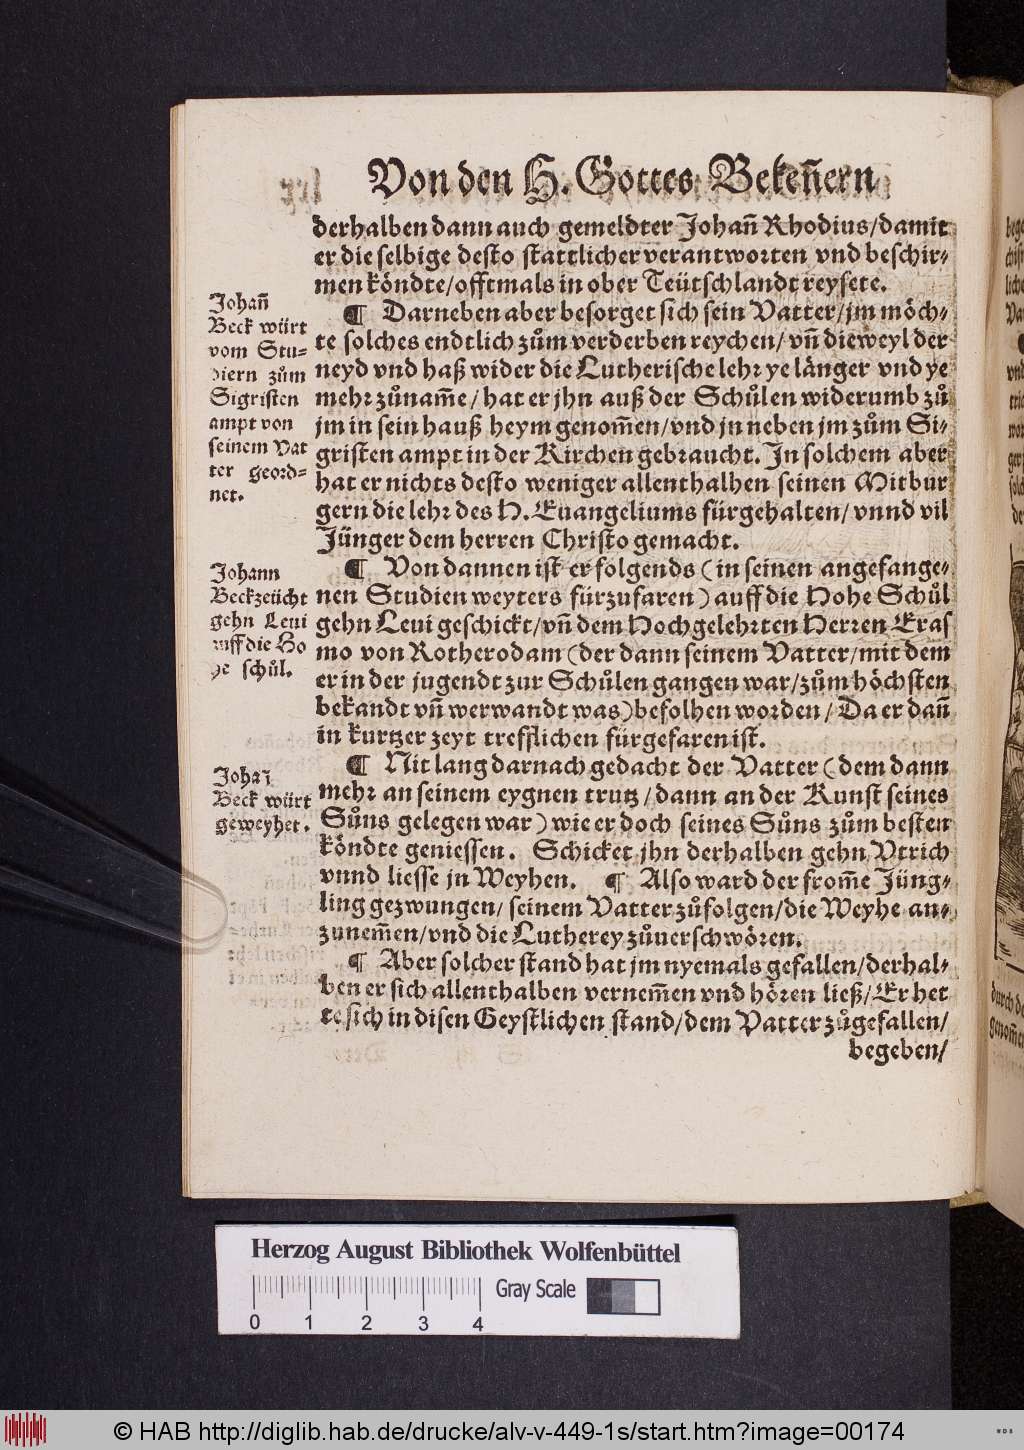 Von den H. Gottes Bekeñern
derhalben dann auch gemeldter Johañ Rhodius/damit
er die selbige desto stattlicher verantworten vnd beschir-
men köndte/offtmals in ober Teütschlandt reysete.
¶ Darneben aber besorget sich sein Vatter/jm möch-
te solches endtlich zům verderben reychen/vñ dieweyl der
neyd vnd haß wider die Lutherische lehr ye länger vnd ye
mehr zůnam̃e/hat er jhn auß der Schůlen widerumb zů
jm in sein hauß heym genom̃en/vnd jn neben jm zům Si-
gristen ampt in der Kirchen gebraucht. In solchem aber
hat er nichts desto weniger allenthalben seinen Mitbur
gern die lehr des H. Euangeliums fürgehalten/vnnd vil
Jünger dem herren Christo gemacht.
Johañ
Beck würt
vom Stu-
diern zům
Sigristen
ampt von
seinem Vat
ter geord-
net.
¶ Von dannen ist er folgends (in seinen angefange-
nen Studien weyters fürzufaren) auff die Hohe Schůl
gehn Leui geschickt/vñ dem Hochgelehrten Herren Eras
mo von Rotherodam (der dann seinem Vatter/mit dem
er in der jugendt zur Schůlen gangen war/zům höchsten
bekandt vñ werwandt was) befolhen worden/Da er dañ
in kurtzer zeyt trefflichen fürgefaren ist.
Johann
Beck zeücht
gehn Leui
auff die Ho
he schůl.
¶ Nit lang darnach gedacht der Vatter (dem dann
mehr an seinem eygnen trutz/dann an der Kunst seines
Sůns gelegen war) wie er doch seines Sůns zům besten
köndte geniessen. Schicket jhn derhalben gehn Vtrich
vnnd liesse jn Weyhen. ¶ Also ward der from̃e Jüng-
ling gezwungen/seinem Vatter zůfolgen/die Weyhe an-
zunem̃en/vnd die Lutherey zůuerschwören.
Johañ
Beck würt
geweyhet.
¶ Aber solcher stand hat jm nyemals gefallen/derhal-
ben er sich allenthalben vernem̃en vnd hören ließ/Er het
te sich in disen Geystlichen stand/dem Vatter zůgefallen/
begeben/
Herzog August Bibliothek Wolfenbüttel
Gray Scale
0 1 2 3 4
© HAB http://diglib.hab.de/drucke/alv-v-449-1s/start.htm?image=00174